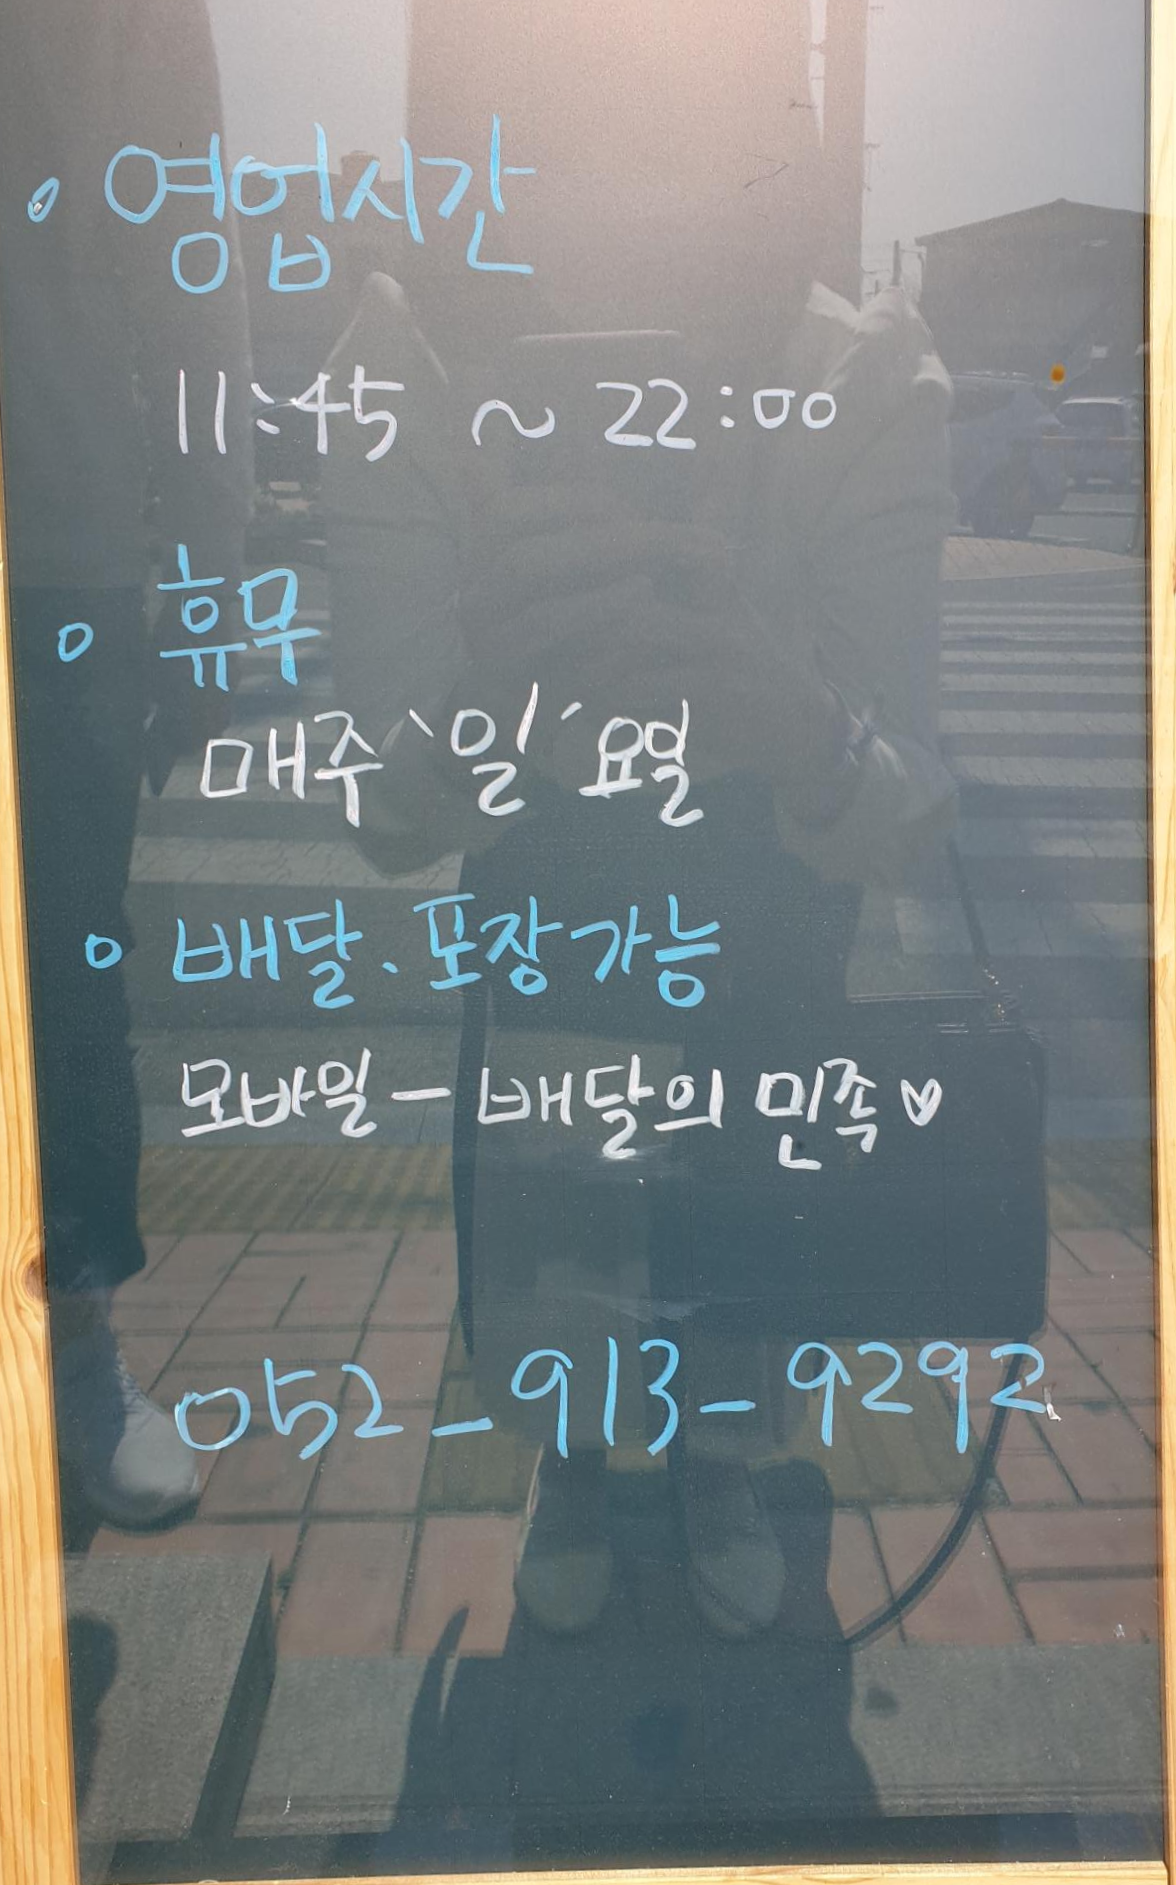 영업시간
11:45 ~ 22:00
휴무
매주 '일' 요일
배달.포장가능
모바일 - 배달의 민족♥
052-913-9292